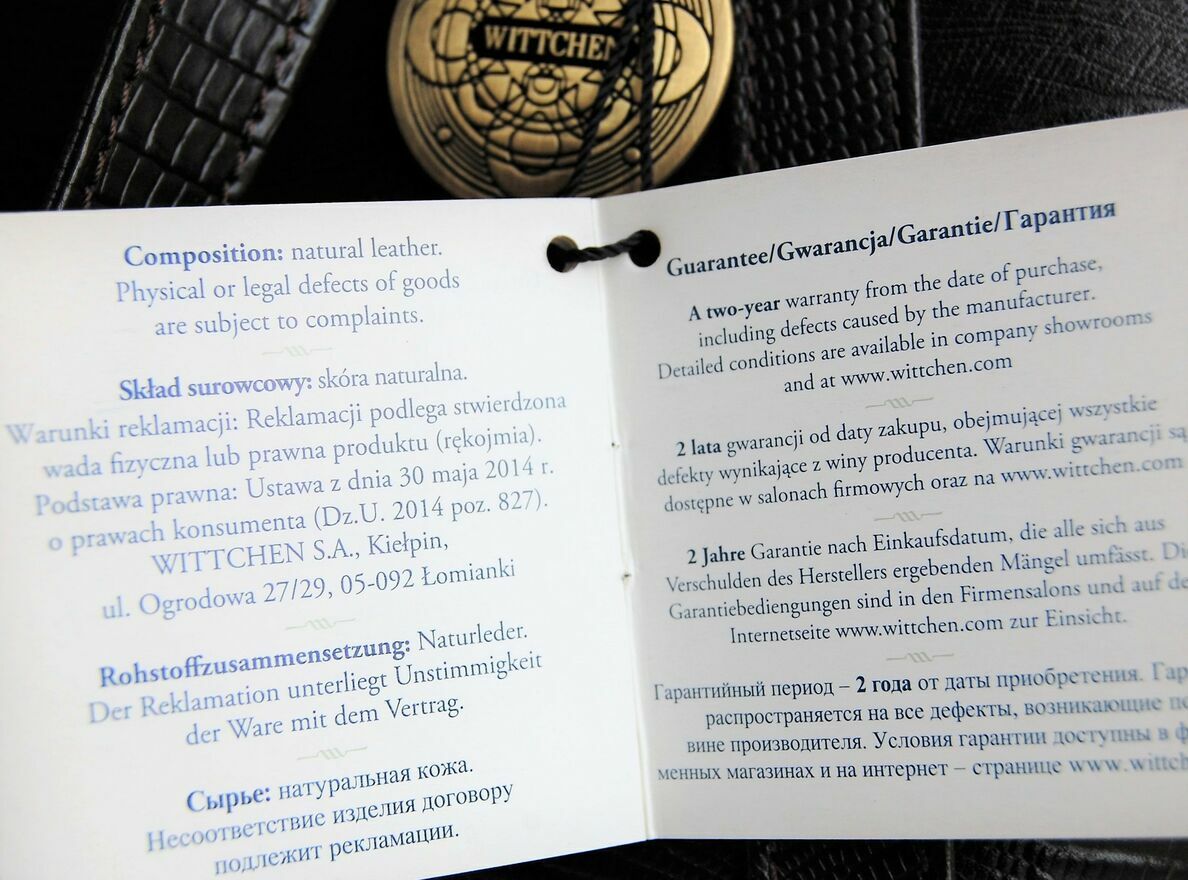 WITTCHEN
Composition: natural leather.
Physical or legal defects of goods
are subject to complaints.
Skład surowcowy: skóra naturalna.
Warunki reklamacji: Reklamacji podlega stwierdzona
wada fizyczna lub prawna produktu (rękojmia).
Podstawa prawna: Ustawa z dnia 30 maja 2014 r.
o prawach konsumenta (Dz.U. 2014 poz. 827).
WITTCHEN S.A., Kiełpin,
ul. Ogrodowa 27/29, 05-092 Łomianki
Rohstoffzusammensetzung: Naturleder.
Der Reklamation unterliegt Unstimmigkeit
der Ware mit dem Vertrag.
Сырье: натуральная кожа.
Несоответствие изделия договору
подлежит рекламации.
Guarantee/Gwarancja/Garantie/Гарантия
A two-year warranty from the date of purchase,
including defects caused by the manufacturer.
Detailed conditions are available in company showrooms
and at www.wittchen.com
2 lata gwarancji od daty zakupu, obejmującej wszystkie
defekty wynikające z winy producenta. Warunki gwarancji są
dostępne w salonach firmowych oraz na www.wittchen.com
2 Jahre Garantie nach Einkaufsdatum, die alle sich aus
Verschulden des Herstellers ergebenden Mängel umfässt.
Garantiebediengungen sind in den Firmensalons und auf
Internetseite www.wittchen.com zur Einsicht.
Гарантийный период – 2 года от даты приобретения.
распространяется на все дефекты, возникающие
вине производителя. Условия гарантии доступны в
менных магазинах и на интернет – странице